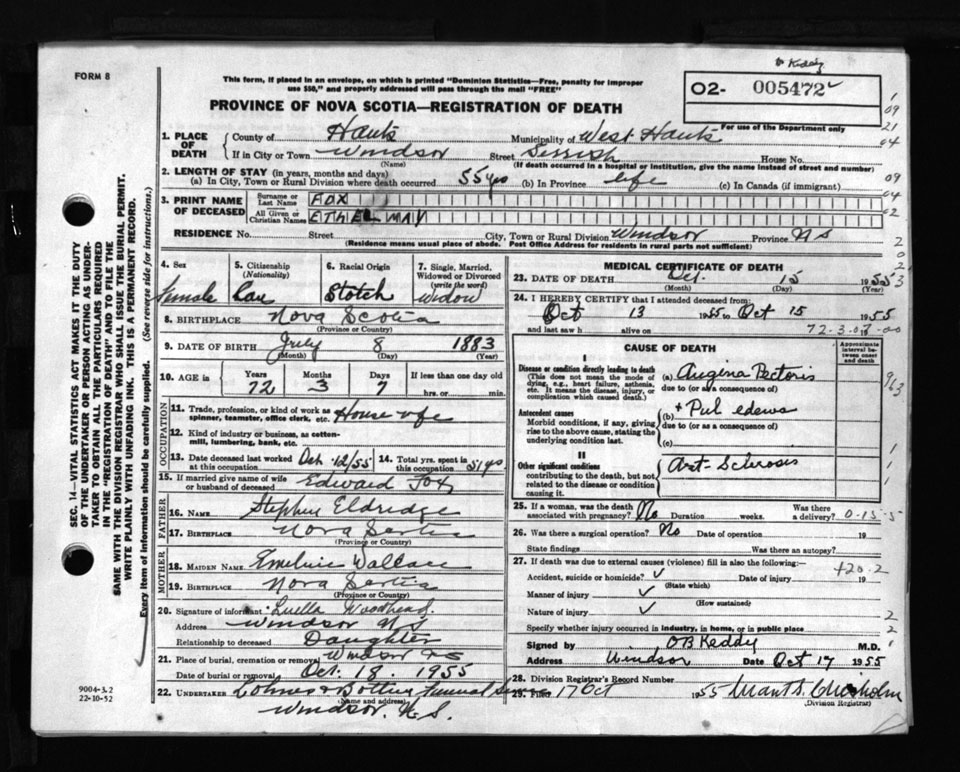 Keddy
FORM 8
This form, if placed in an envelope, on which is printed "Dominion Statistics—Free, penalty for improper
use $50," and properly addressed will pass through the mail "FREE"
O2- 005472
PROVINCE OF NOVA SCOTIA—REGISTRATION OF DEATH
For use of the Department only
1. PLACE OF DEATH
County of Hants Municipality of West Hants
If in City or Town Windsor Street House No.
(Name) (If death occurred in a hospital or institution, give the name instead of street and number)
2. LENGTH OF STAY (in years, months and days)
(a) In City, Town or Rural Division where death occurred 55 yrs (b) In Province life (c) In Canada (if immigrant)
3. PRINT NAME OF DECEASED
Surname or Last Name FOX
All Given or Christian Names ETHEL MAY
RESIDENCE No. Street City, Town or Rural Division Windsor Province N S
(Residence means usual place of abode. Post Office Address for residents in rural parts not sufficient)
4. Sex female
5. Citizenship (Nationality) Can
6. Racial Origin Stotch
7. Single, Married, Widowed or Divorced (write the word) Widow
8. BIRTHPLACE Nova Scotia
(Province or Country)
9. DATE OF BIRTH July 8 1883
(Month) (Day) (Year)
10. AGE in Years 72 Months 3 Days 7 If less than one day old hrs. or min.
OCCUPATION
11. Trade, profession, or kind of work as spinner, teamster, office clerk, etc. House wife
12. Kind of industry or business, as cotten-mill, lumbering, bank, etc.
13. Date deceased last worked at this occupation Oct 12/55 14. Total yrs. spent in this occupation 51 yrs
15. If married give name of wife or husband of deceased Edward Fox
FATHER
16. NAME Stephen Eldridge
17. BIRTHPLACE Nova Scotia
(Province or Country)
MOTHER
18. MAIDEN NAME Emeline Wallace
19. BIRTHPLACE Nova Scotia
(Province or Country)
20. Signature of informant Luella Woodhead
Address Windsor N S
Relationship to deceased Daughter
21. Place of burial, cremation or removal Windsor N S
Date of burial or removal Oct. 18. 1955
22. UNDERTAKER Funeral
(Name and address)
Windsor. N. S.
MEDICAL CERTIFICATE OF DEATH
23. DATE OF DEATH Oct. 15 1955
(Month) (Day) (Year)
24. I HEREBY CERTIFY that I attended deceased from:
Oct 13 1955 to Oct 15 1955
and last saw h alive on 19
72-3-07-00
CAUSE OF DEATH
Approximate interval between onset and death
I
Disease or condition directly leading to death
(This does not mean the mode of dying, e.g., heart failure, asthenia, etc. It means the disease, injury, or complication which caused death.)
(a) Angina Pectoris
due to (or as a consequence of)
Antecedent causes
Morbid conditions, if any, giving rise to the above cause, stating the underlying condition last.
(b) + Pul edema
due to (or as a consequence of)
(c)
II
Other significant conditions
contributing to the death, but not related to the disease or condition causing it.
Art-Sclerosis
25. If a woman, was the death associated with pregnancy? No Duration weeks. Was there a delivery? 0-15-5
26. Was there a surgical operation? No Date of operation 19
State findings Was there an autopsy?
27. If death was due to external causes (violence) fill in also the following:—
Accident, suicide or homicide? Date of injury 19
(State which)
420.2
Manner of injury
(How sustained)
Nature of injury
Specify whether injury occurred in industry, in home, or in public place
Signed by OB Keddy M.D.
Address Windsor Date Oct 17 1955
28. Division Registrar's Record Number
29. 17 Oct 1955 Chisholm
(Division Registrar)
9004-3.2
22-10-52
SEC. 14—VITAL STATISTICS ACT MAKES IT THE DUTY
OF THE UNDERTAKER OR PERSON ACTING AS UNDER-
TAKER TO OBTAIN ALL THE PARTICULARS REQUIRED
IN THE "REGISTRATION OF DEATH" AND TO FILE THE
SAME WITH THE DIVISION REGISTRAR WHO SHALL ISSUE THE BURIAL PERMIT.
WRITE PLAINLY WITH UNFADING INK. THIS IS A PERMANENT RECORD.
Every item of information should be carefully supplied. (See reverse side for instructions.)
1
09
21
04
09
04
02
2
0
2
3
963
1
1
1
2
2
1